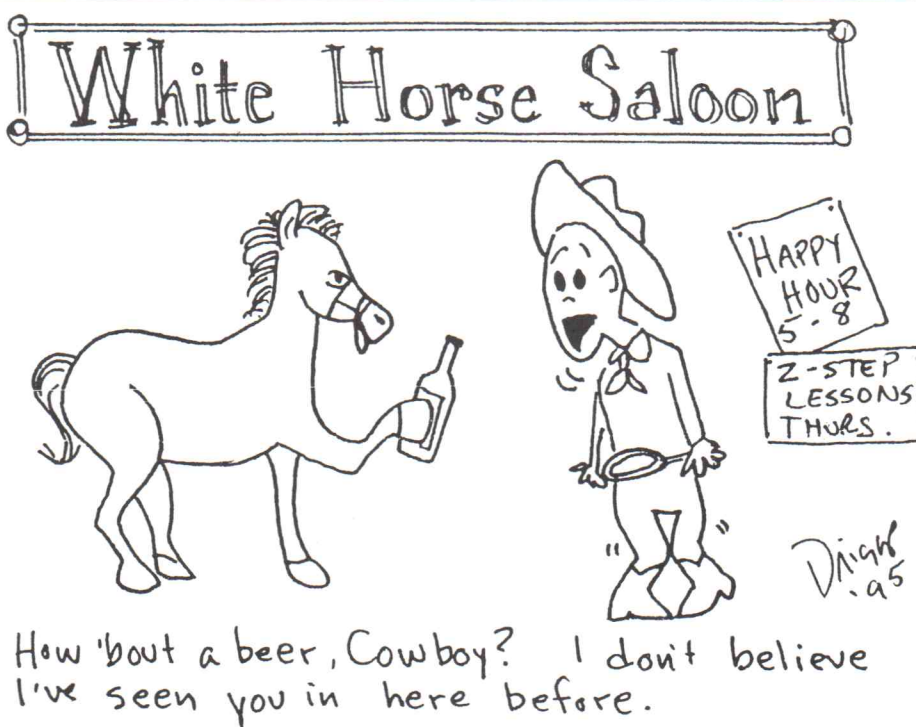 White Horse Saloon
HAPPY
HOUR
5-8
2-STEP
LESSONS
THURS.
.95
How 'bout a beer, Cowboy? I don't believe
I've seen you in here before.